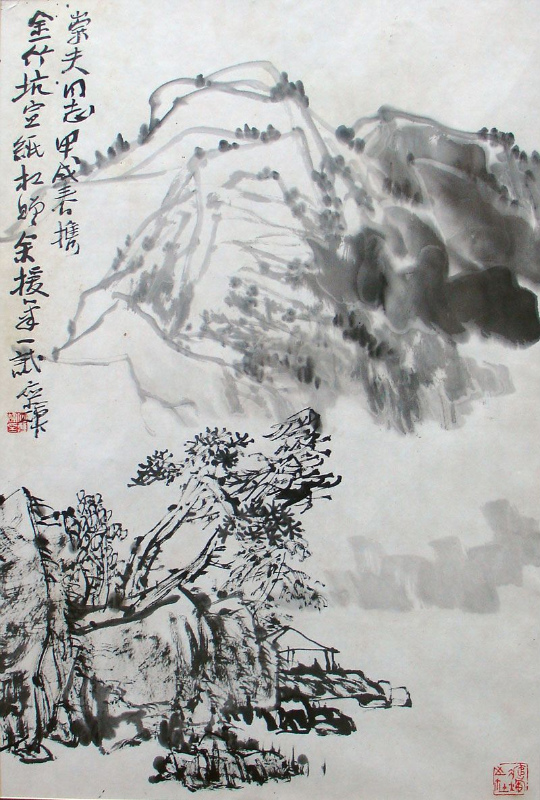 崇夫同志甲戌春携
金竹坑宣紙相贈余援筆一試